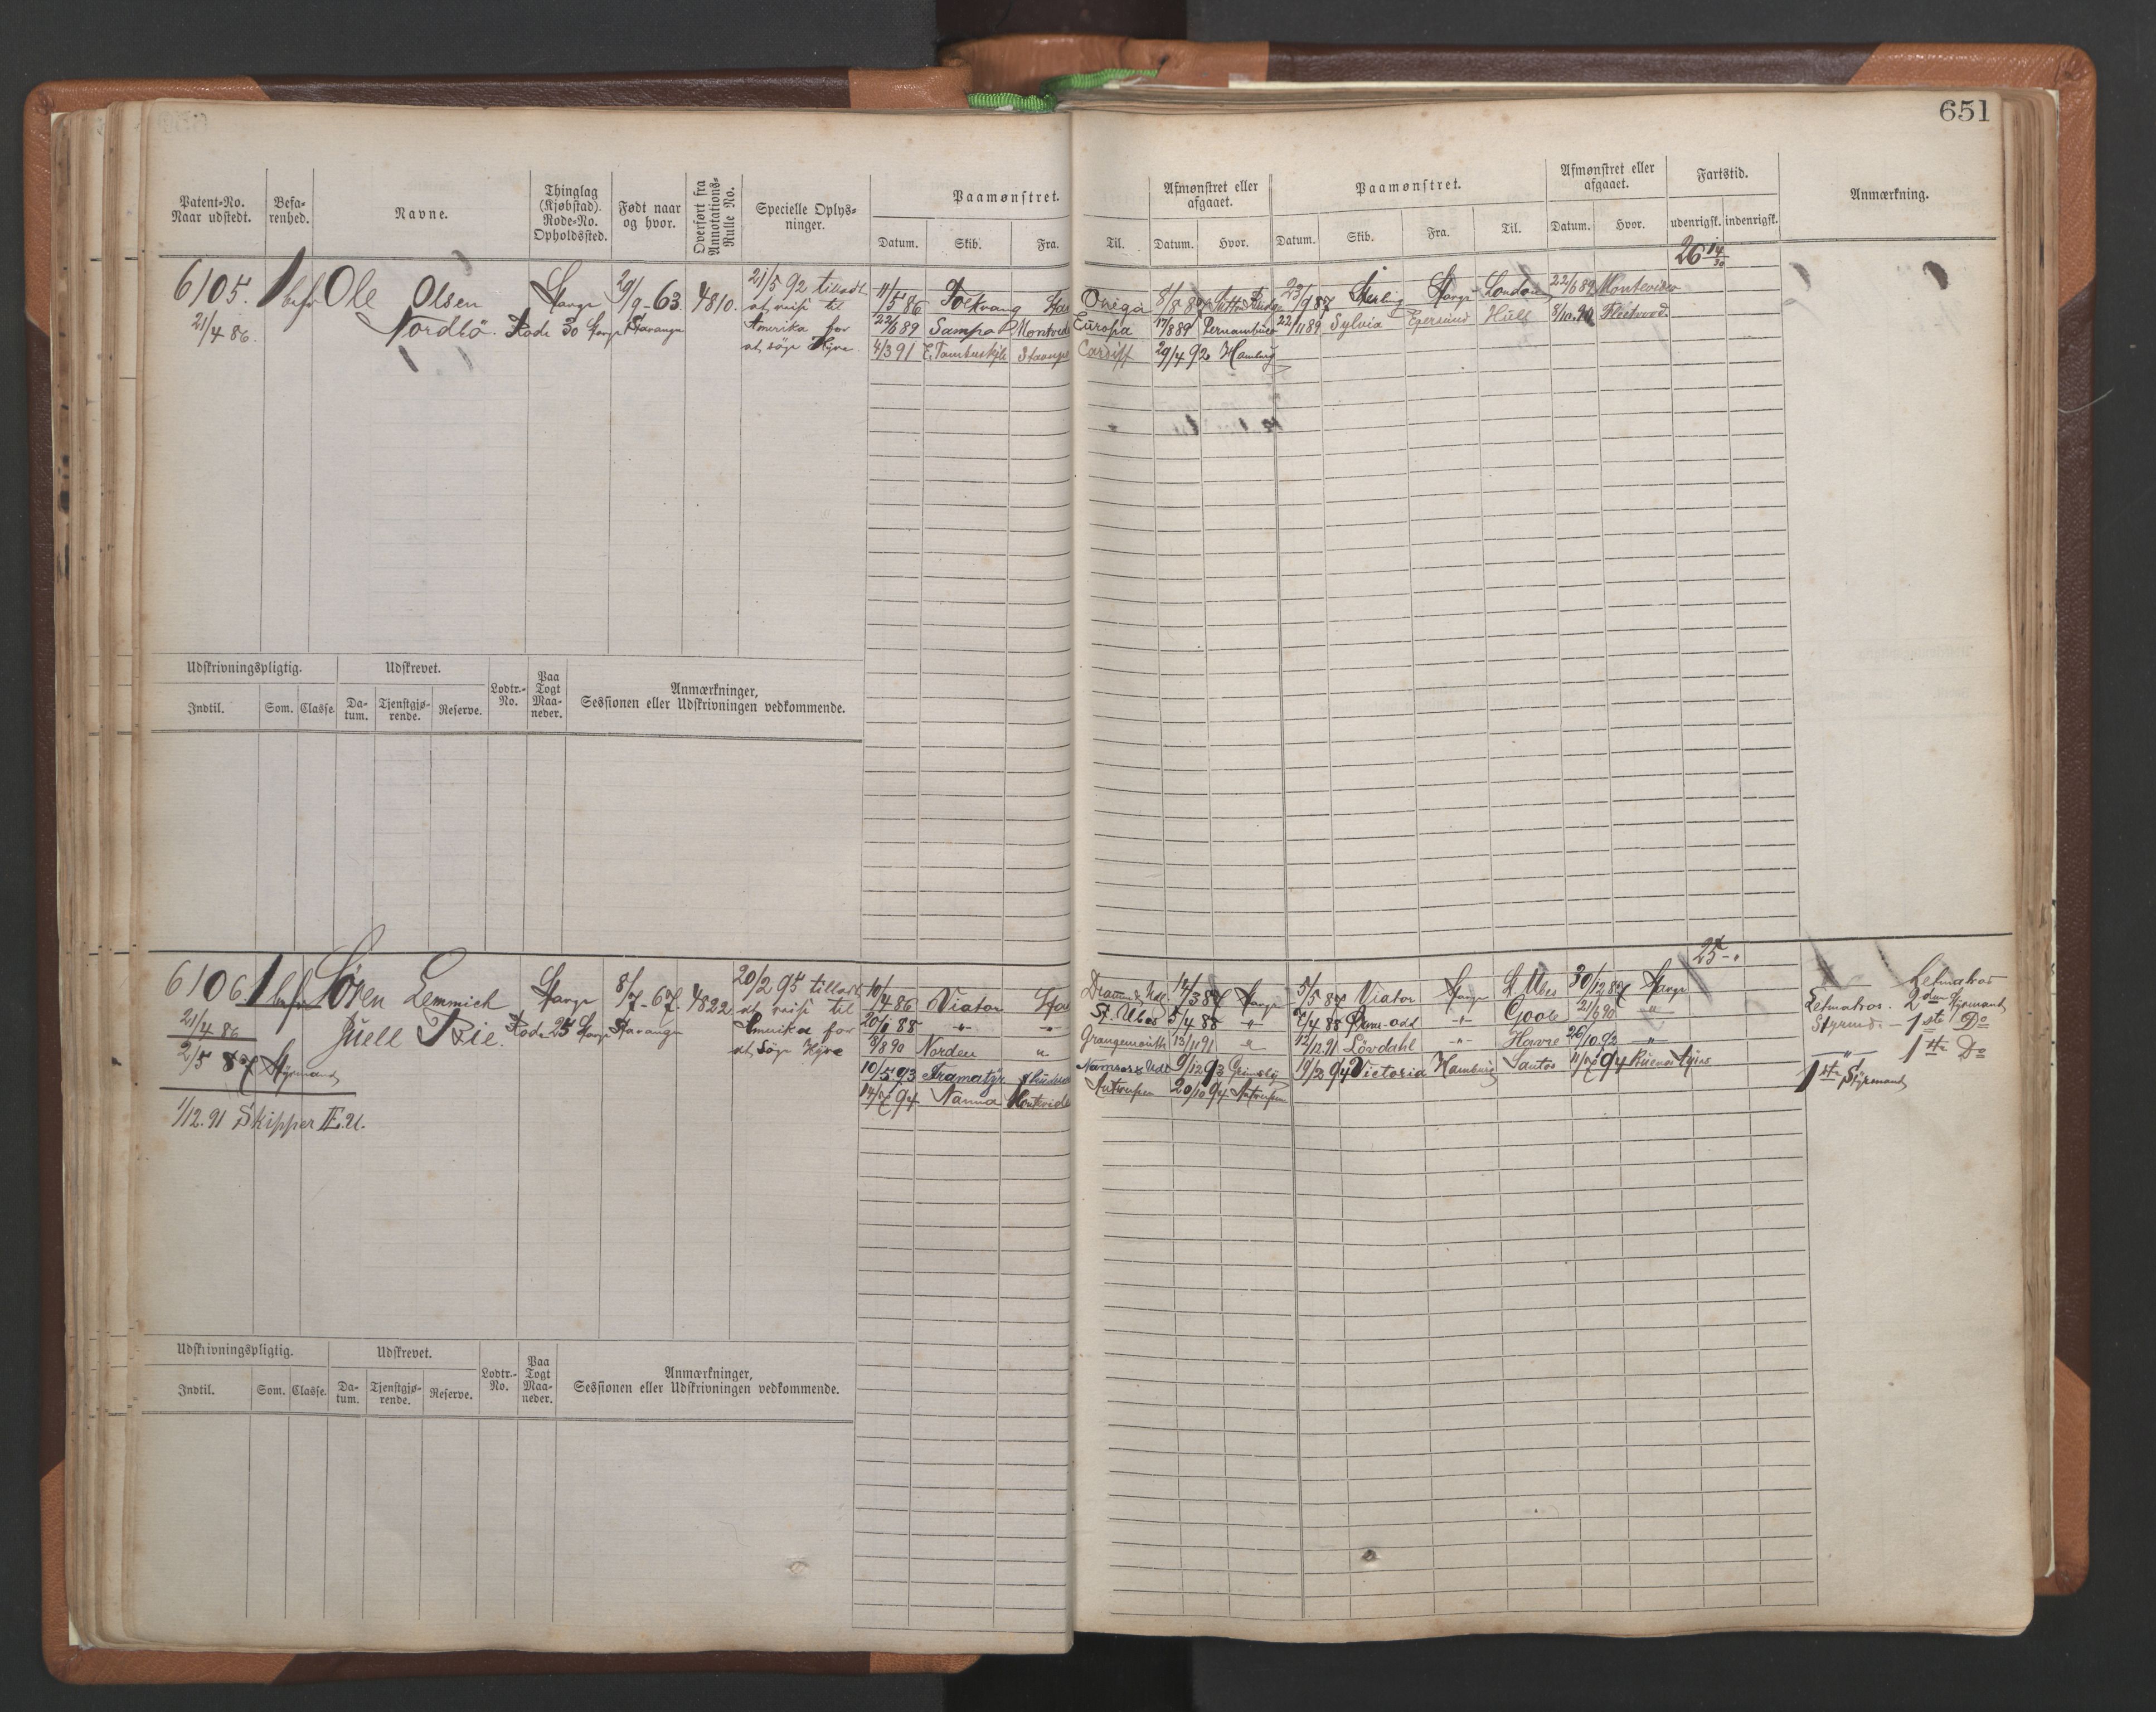 651
Patent-No. Naar udstedt.
Befa-renhed.
Navne.
Thinglag (Kjøbstad). Rode-No. Opholdssted.
Født naar og hvor.
Overført fra Annotations-Rulle No.
Specielle Oplys-ninger.
Paamønstret.
Datum. Skib. Fra. Til.
Afmønstret eller afgaaet.
Datum. Hvor.
Paamønstret.
Datum. Skib. Fra. Til.
Afmønstret eller afgaaet.
Datum. Hvor.
Fartstid.
udenrigsk. indenrigsk.
Anmærkning.
6105.
21/4 86.
1 bef
Ole Olsen
Nordbö
Stavgr
Rode 30 Stavgr
29/9-63
Stavanger
4810.
21/5 92 tilladt
at reise til
Amerika for
at söge Hyre.
11/5 86 Folkvang Sta Onega 8/8 87
22/6 89 Montevid Europa 17/8 89 Pernambuco
4/3 91 Cardiff 29/4 92 Hamburg
Sterling Stavgr London 22/6 89 Montevideo
22/11 89 Sylvia Egersund Hull 8/10. Fleetwood.
26
Udskrivningspligtig.
Indtil. Som. Classe.
Udskrevet.
Da-tum. Tjenstgjø-rende. Reserve.
Lodtr.-No.
Paa Togt Maa-neder.
Anmærkninger,
Sessionen eller Udskrivningen vedkommende.
6106
21/4 86
2/5 87 Styrmand
1/12. 91 Skipper E.U.
1 bef
Sören Lemmich
Juell Rie.
Stavgr
Rode 25 Stavgr
8/7-67.
Stavanger
4822
20/2 95 tilladt
at reise til
Amerika for
at söge Hyre
10/4 86 Viator Sta Dram & Udl 14/3 87 Stavgr
20/1 88 -"- " St. Ubes 5/4 88 -"-
8/8 90 Norden " Grangemouth 13/11 91 "
10/5 93 Namsos & Udl 9/12 93 Grimsby
14/7 94 Nanna Montevide Antwerpen 20/10 94 Antwerpen
5/5 87 Viator Stavgr St Ubes 30/12 87 Stavgr
7/4 88 -"- Goole 21/6 90 "
12/12. 91 Lövdahl -"- Havre 26/10 92 -"-
19/2 94 Victoria Hamburg Santos 11/7 94 Buenos Ayres
25
Letmatros
Letmatros. 2den Styrmand
Styrmd. - 1ste Do
" 1ste Do
1ste Styrmand
Udskrivningspligtig.
Indtil. Som. Classe.
Udskrevet.
Da-tum. Tjenstgjø-rende. Reserve.
Lodtr.-No.
Paa Togt Maa-neder.
Anmærkninger,
Sessionen eller Udskrivningen vedkommende.